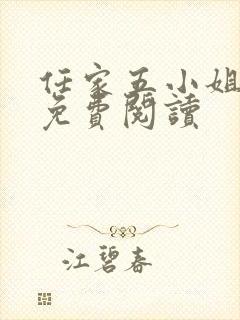 任家五小姐
免費閱讀
江碧春